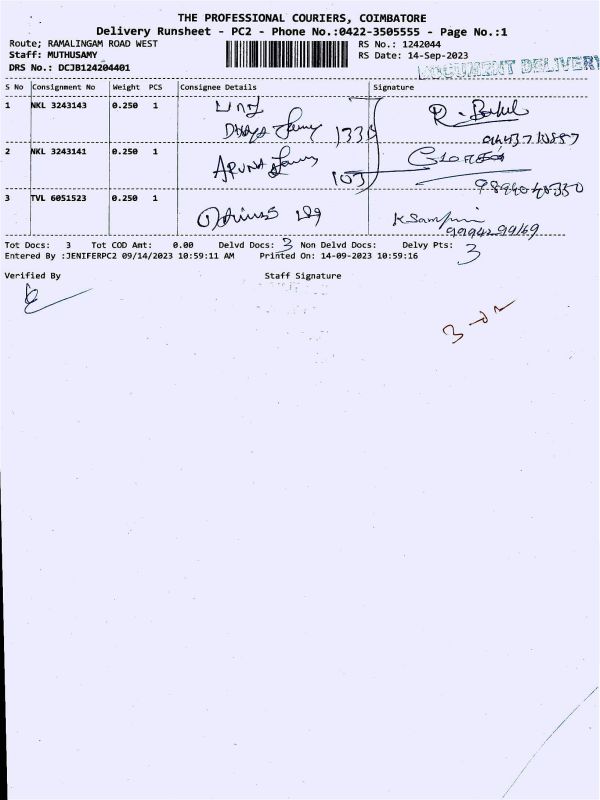 THE PROFESSIONAL COURIERS, COIMBATORE
Delivery Runsheet - PC2 - Phone No.:0422-3505555 - Page No.:1
Route; RAMALINGAM ROAD WEST
RS No.: 1242044
Staff: MUTHUSAMY
RS Date: 14-Sep-2023
DRS No.: DCJB124204401
DOCUMENT DELIVERY
S No Consignment No Weight PCS Consignee Details Signature
1 NKL 3243143 0.250 1
133
2 NKL 3243141 0.250 1
ARUNA
103
3 TVL 6051523 0.250 1
Tot Docs: 3 Tot COD Amt: 0.00 Delvd Docs: 3 Non Delvd Docs: Delvy Pts: 3
Entered By :JENIFERPC2 09/14/2023 10:59:11 AM Printed On: 14-09-2023 10:59:16
Verified By Staff Signature